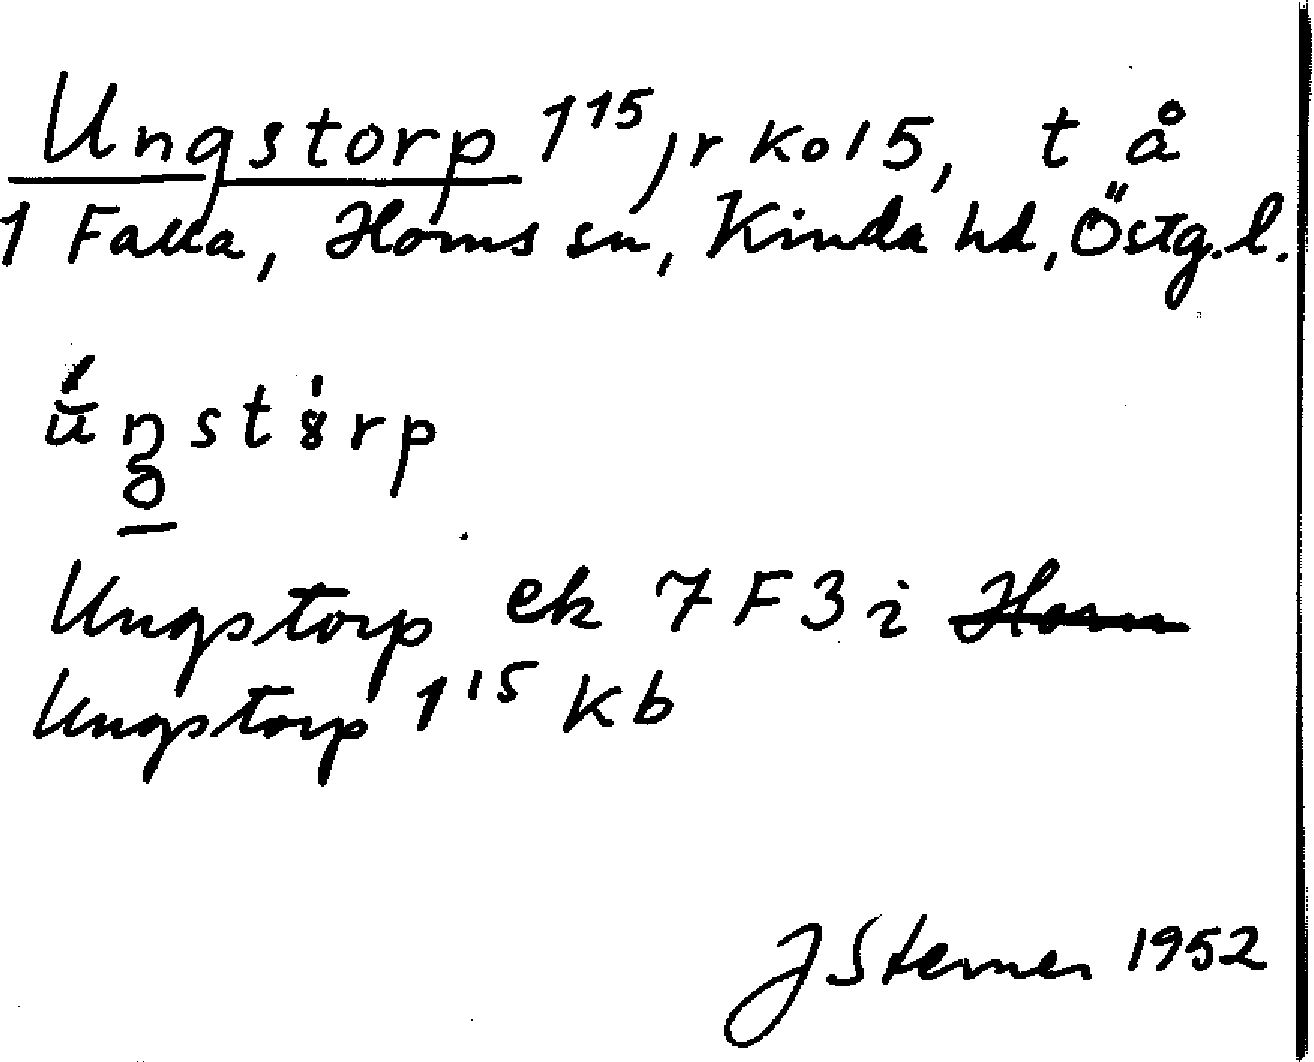 Ungstorp 1¹⁵, jr Ko 15, t å
1 Falla, Horns sn, Kinda hd, Östg. l.
Ungstorp ek 7 F 3 i Horn
Ungstorp 1¹⁵ Kb
J Sterner 1952